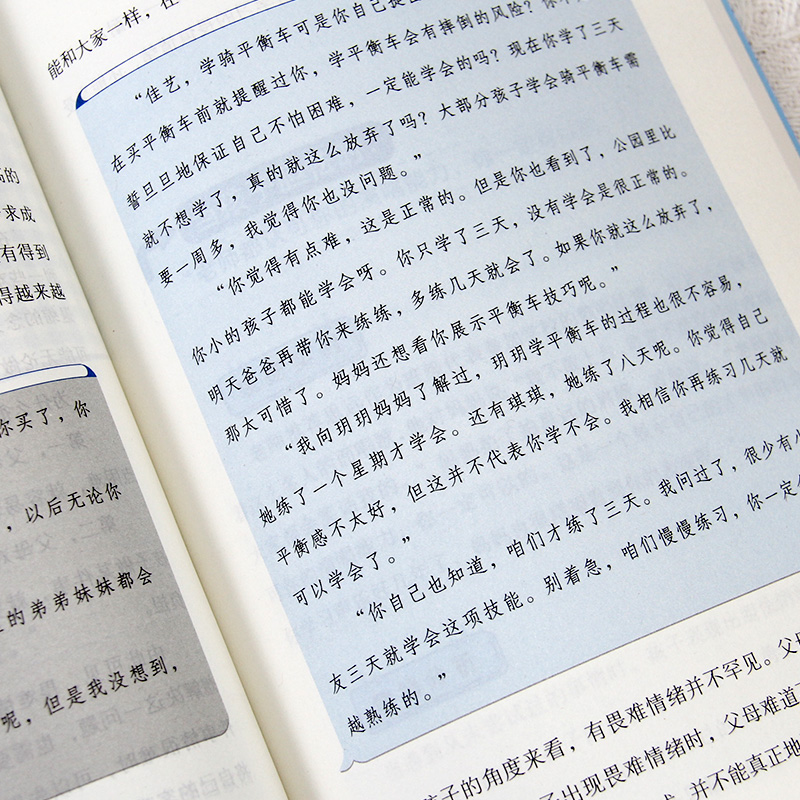 高的
求成
有得到
得越来越
你买了，你
，以后无论你
的弟弟妹妹都会
呢，但是我没想到，
能和大家一样，在
“佳艺，学骑平衡车可是你自己提
在买平衡车前就提醒过你，学平衡车会有摔倒的风险？你
誓旦旦地保证自己不怕困难，一定能学会的吗？现在你学了三天
就不想学了，真的就这么放弃了吗？大部分孩子学会骑平衡车需
要一周多，我觉得你也没问题。”
“你觉得有点难，这是正常的。但是你也看到了，公园里比
你小的孩子都能学会呀。你只学了三天，没有学会是很正常的。
明天爸爸再带你来练练，多练几天就会了。如果你就这么放弃了，
那太可惜了。妈妈还想看你展示平衡车技巧呢。”
“我向玥玥妈妈了解过，玥玥学平衡车的过程也很不容易，
她练了一个星期才学会。还有琪琪，她练了八天呢。你觉得自己
平衡感不太好，但这并不代表你学不会。我相信你再练习几天就
可以学会了。”
“你自己也知道，咱们才练了三天。我问过了，很少有小
友三天就学会这项技能。别着急，咱们慢慢练习，你一定
越熟练的。”
孩子的角度来看，有畏难情绪并不罕见。父母
出现畏难情绪时，父母难道
并不能真正地